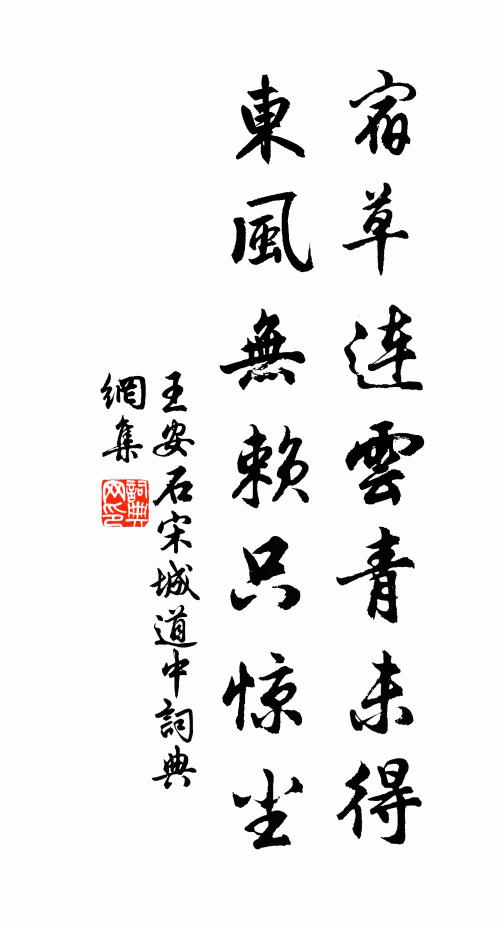 宿草連雲青未得
東風無赖只惊尘
王安石宋城道中詞典
網集
詞典
网印